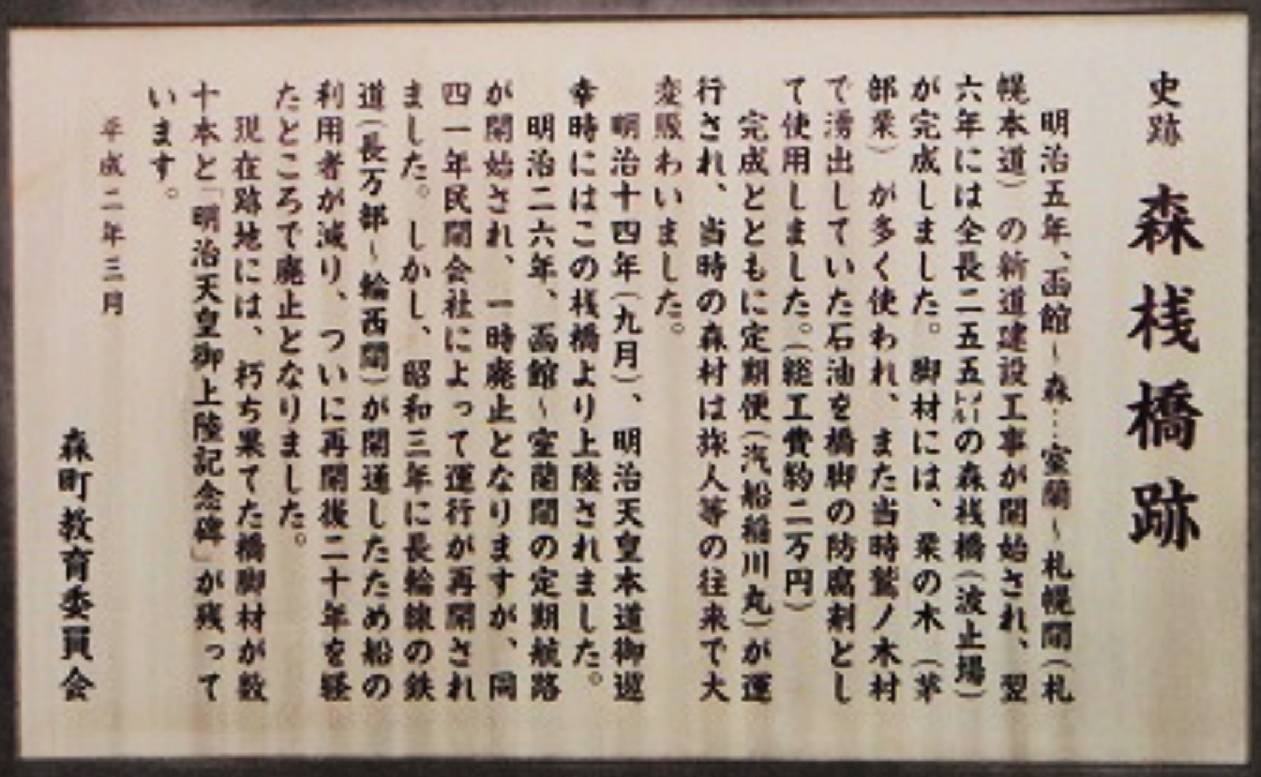 史跡 森桟橋跡
明治五年、函館~森…室蘭~札幌間(札
幌本道)の新道建設工事が開始され、翌
六年には全長二五五メートルの森桟橋(波止場)
が完成しました。脚材には、栗の木(茅
部栗)が多く使われ、また当時鷲ノ木村
で湧出していた石油を橋脚の防腐剤とし
て使用しました。(総工費約二万円)
完成とともに定期便(汽船稲川丸)が運
行され、当時の森村は旅人等の往来で大
変賑わいました。
明治十四年(九月)、明治天皇本道御巡
幸時にはこの桟橋より上陸されました。
明治二六年、函館~室蘭間の定期航路
が開始され、一時廃止となりますが、同
四一年民間会社によって運行が再開され
ました。しかし、昭和三年に長輪線の鉄
道(長万部~輪西間)が開通したため船の
利用者が減り、ついに再開後二十年を経
たところで廃止となりました。
現在跡地には、朽ち果てた橋脚材が数
十本と「明治天皇御上陸記念碑」が残って
います。
平成二年三月
森町教育委員会